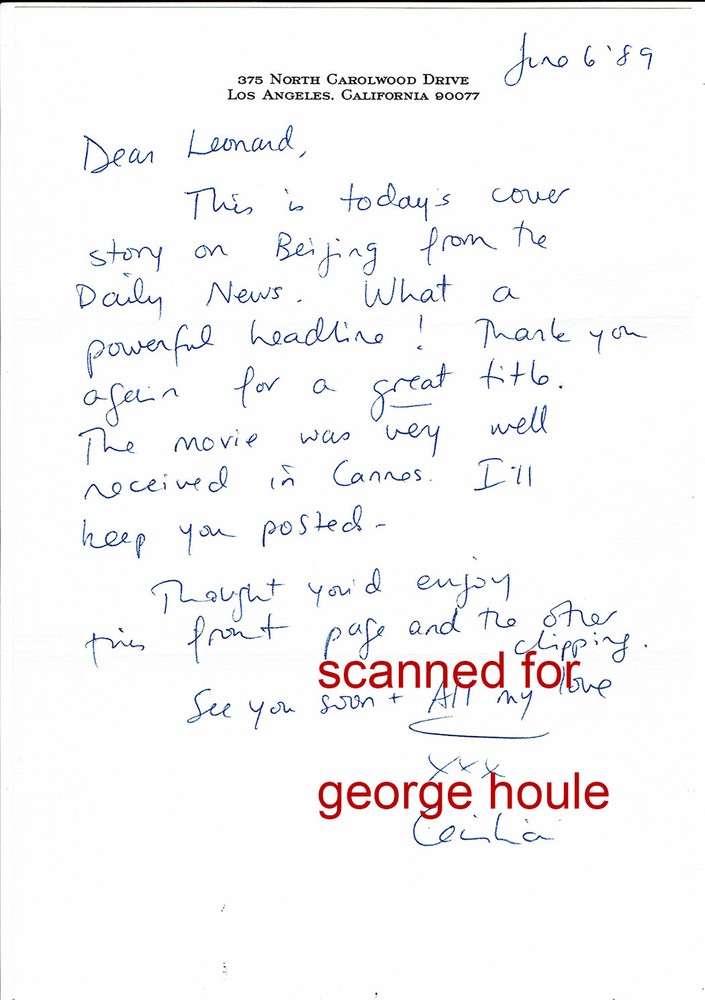 June 6 '89
375 North Carolwood Drive
Los Angeles, California 90077
Dear Leonard,
This is today's cover
story on Beijing from the
Daily News. What a
powerful headline! Thank you
again for a great title.
The movie was very well
received in Cannes. I'll
keep you posted -
Thought you'd enjoy
this front page and the other
clipping.
scanned for
See you soon + All my love
xxx
george houle
Cecilia